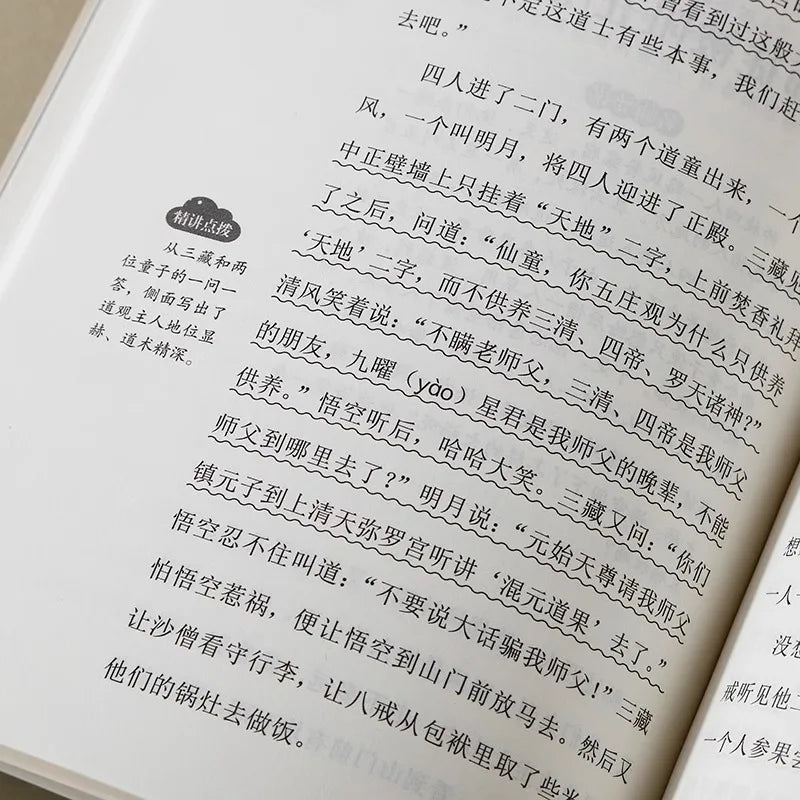 曾看到过这般
不定这道士有些本事，我们赶
去吧。”
四人进了二门，有两个道童出来，一个
风，一个叫明月，将四人迎进了正殿。三藏见
中正壁墙上只挂着“天地”二字，上前焚香礼拜
了之后，问道：“仙童，你五庄观为什么只供养
‘天地’二字，而不供养三清、四帝、罗天诸神？”
清风笑着说：“不瞒老师父，三清、四帝是我师父
的朋友，九曜（yào）星君是我师父的晚辈，不能
供养。”悟空听后，哈哈大笑。三藏又问：“你们
师父到哪里去了？”明月说：“元始天尊请我师父
镇元子到上清天弥罗宫听讲‘混元道果’去了。”
悟空忍不住叫道：“不要说大话骗我师父！”三藏
怕悟空惹祸，便让悟空到山门前放马去。然后又
让沙僧看守行李，让八戒从包袱里取了些米
他们的锅灶去做饭。
精讲点拨
从三藏和两
位童子的一问一
答，侧面写出了
道观主人地位显
赫、道术精深。
想
一人
没想
戒听见他
一个人参果